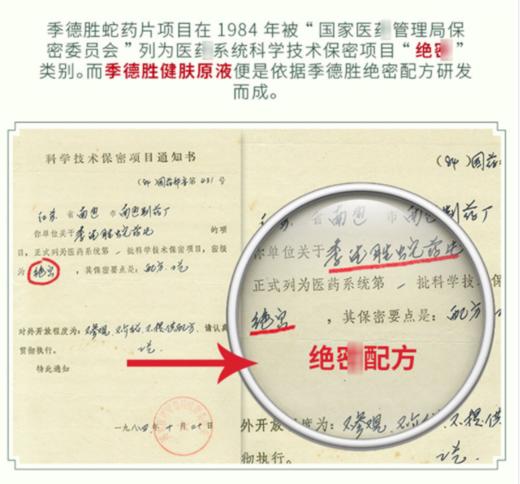 季德胜蛇药片项目在 1984 年被“国家医药管理局保
密委员会”列为医药系统科学技术保密项目“绝密”
类别。而季德胜健肤原液便是依据季德胜绝密配方研发
而成。
科学技术保密项目通知书
(84)国药
江苏 省 南通 市 南通制药厂
你单位关于 季德胜蛇药片 的项
目,正式列为医药系统第一批科学技术保密项目,密级
为 绝密 ,其保密要点是: 配方、工艺
对外开放程度为: 不参观、不介绍、不提供配方、 请认真
贯彻执行。 工艺
特此通知
一九八四年十月二十日
(84)国药
江苏 省 南通 市 南通制药厂
你单位关于 季德胜蛇药片
正式列为医药系统第一批科学技术
绝密 ,其保密要点是: 配方
绝密配方
外开放程度为: 不参观、不介绍、不提供
彻执行。 工艺